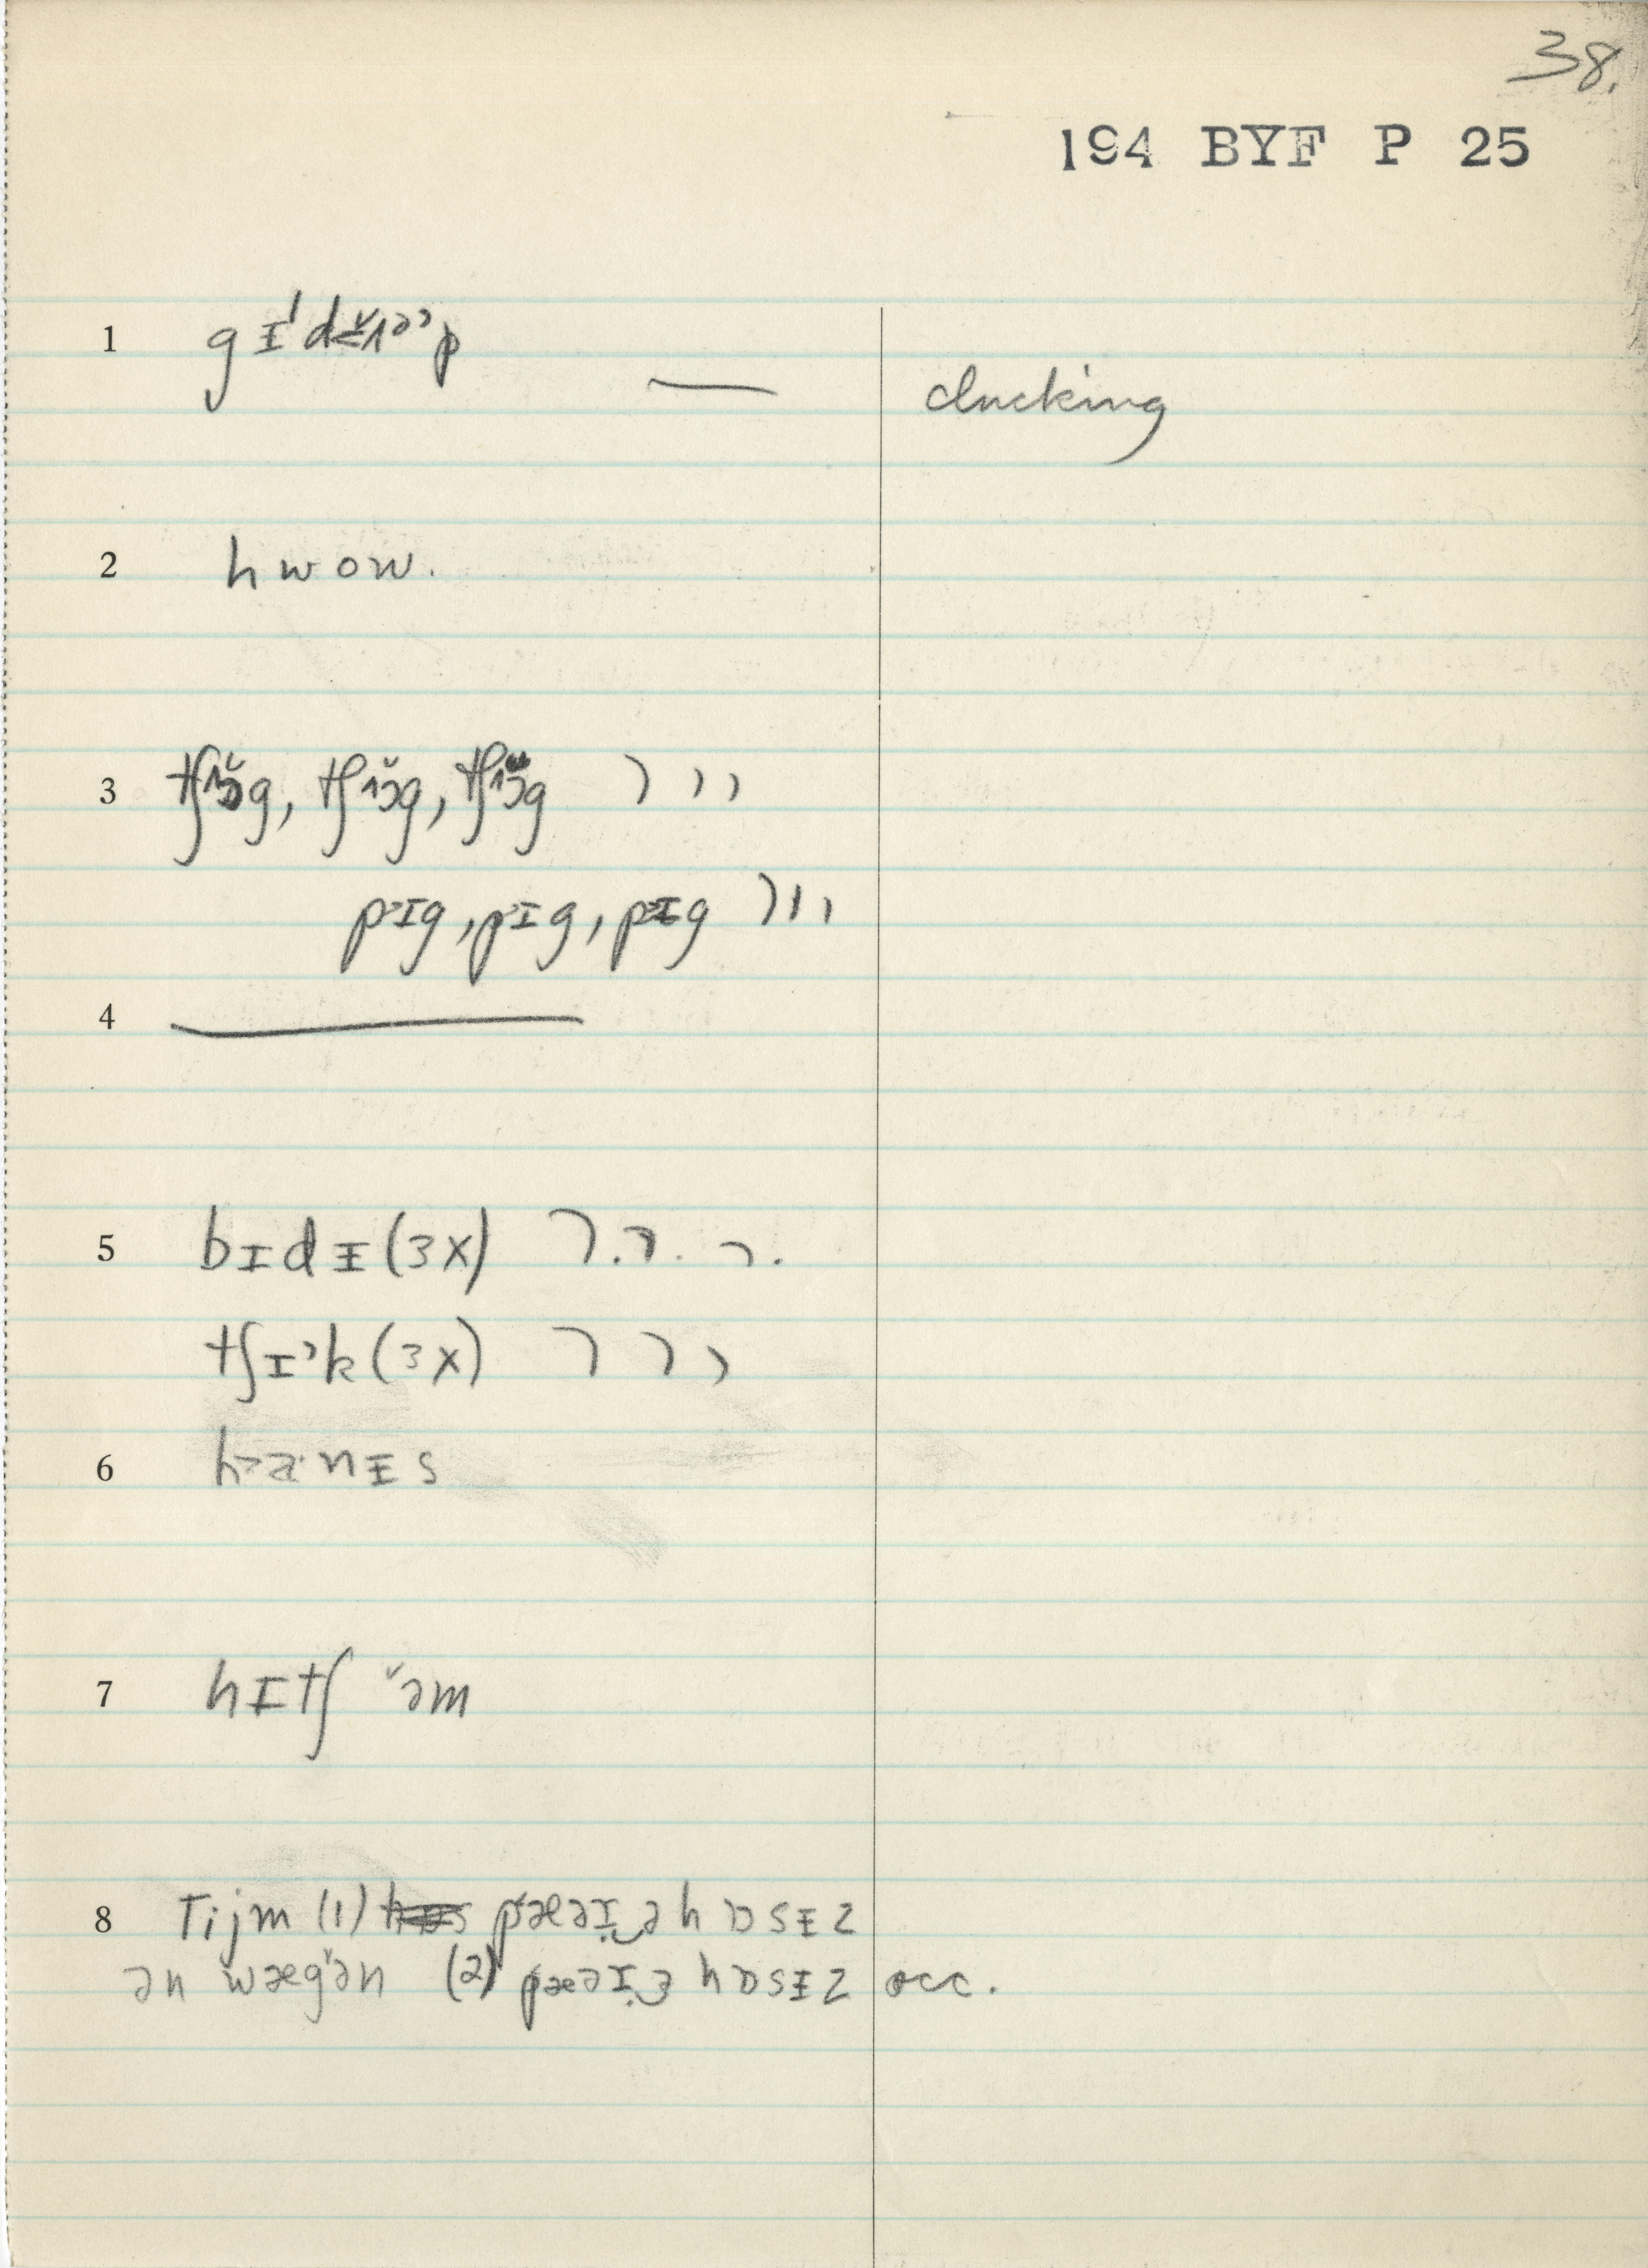 38.
194 BYF P 25
1 gɪˈdʌ̆əˀp — clucking
2 hwow.
3 tʃɔ̆g, tʃɔ̆g, tʃɔ̆g ) ) )
pɪg, pɪg, pɪg ) ) )
4 —
5 bɪdᵻ (3X) ⁊. ⁊. ⁊.
tʃɪ˒k (3X) ) ) )
6 ha·nᵻs
7 hɪtʃ ˇəm
8 Tijm (1) pæəɪ̣‿ə hɒsᵻz
ən wæğən (2) pæəɪ̣‿ɜ hɒsᵻz occ.